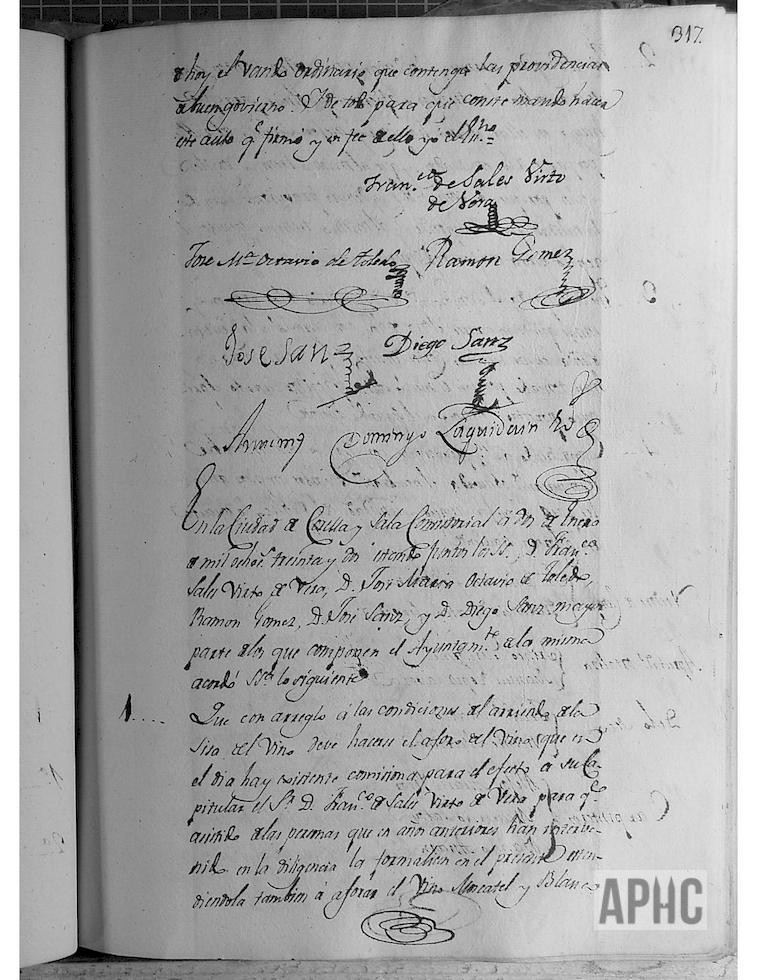 317.
de hoy el vando ordinario que contenga las providencias
de buen govierno. Y de todo para que conste mando hacer
este auto q.e firmó y en fee de ello yo el
Fran.co de Sales Virto
de Vera
Jose M.a Octavio de Toledo Ramon Gomez
Jose Sanz Diego Sanz
Domingo Laquidain
En la Ciudad de Corella y Sala Consistorial á dos de Enero
de mil ochos. treinta y dos estando juntos los SS. D. Fran.co
Sales Virto de Vera, D. Jose Maria Octavio de Toledo,
Ramon Gomez, D. Jose Sanz, y D. Diego Sanz mayor
parte de los que componen el Ayuntam.to de la misma
acordó lo siguiente
1....
Que con arreglo á las condiciones del arriendo de la
Sisa del Vino debe hacerse el aforo del Vino que en
el dia hay existente comisiona para el efecto á su Ca-
pitular el S.r D. Fran.co de Sales Virto de Vera para q.e
asistido de las personas que en años anteriores han interve-
nido en la diligencia la formalicen en el presente esten-
diendola tambien á aforar el Vino Moscatel y Blanco
APHC